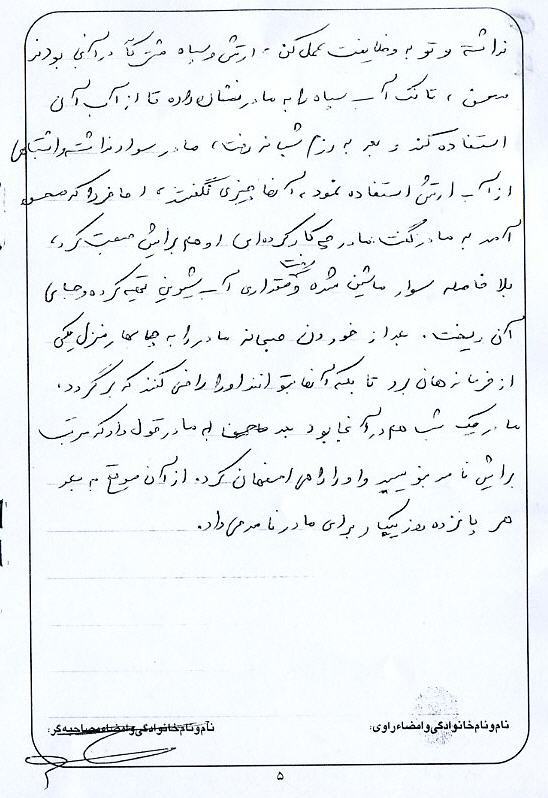 نداشته و تو به وظایفت عمل کن، ارتش و سپاه مشترکاً در آنجا بودند
محسن، تانک آب سپاه را به مادر نشان داده تا از آب آن
استفاده کند و بعد به رزم شبانه رفت، مادر سواد نداشته و اشتباهی
از آب ارتش استفاده نمود، آنها چیزی نگفتند، اما فردا که محسن
آمد به مادر گفت: مادر چه کار کرده‌ای او هم برایش صحبت کرد،
بلا فاصله سوار ماشین شده رفت و مقداری آب شیرین تهیه کرده و جای
آن ریخت. بعد از خوردن صبحانه مادر را به چابهار منزل یکی
از فرماندهان برد تا بلکه آنها بتوانند او را راضی کنند که برگردد.
مادر یک شب هم در آنجا بود بعد محسن به مادر قول داد که مرتب
برایش نامه بنویسد و او را راهی اصفهان کرد. از آن موقع به بعد
هر پانزده روز یکبار برای مادر نامه می‌داد.
نام و نام خانوادگی و امضاء راوی:
نام و نام خانوادگی و امضاء مصاحبه گر:
۵